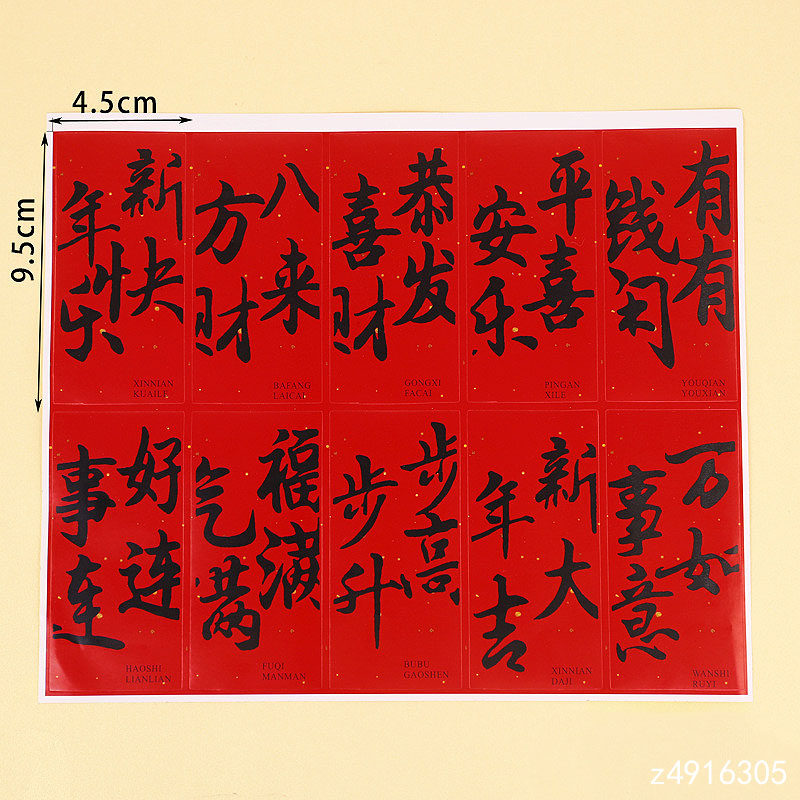 4.5cm
9.5cm
新年快乐
XINNIAN
KUAILE
八方来财
BAFANG
LAICAI
恭喜发财
GONGXI
FACAI
平安喜乐
PINGAN
XILE
有钱有闲
YOUQIAN
YOUXIAN
好事连连
HAOSHI
LIANLIAN
福气满满
FUQI
MANMAN
步步高升
BUBU
GAOSHEN
新年大吉
XINNIAN
DAJI
万事如意
WANSHI
RUYI
z4916305